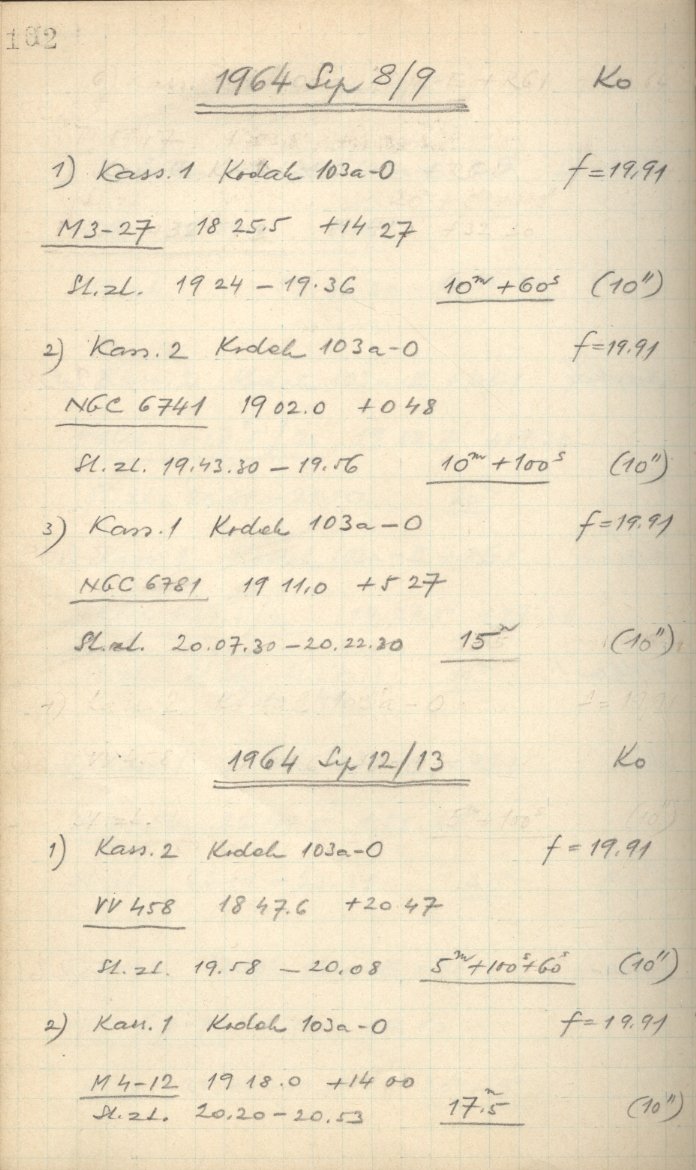 102
1964 Sep 8/9 Ko
1) Kass.1 Kodak 103a-O f=19.91
M3-27 18 25.5 +14 27
St.zt. 19 24 - 19.36 10ᵐ+60ˢ (10")
2) Kass.2 Kodak 103a-O f=19.91
NGC 6741 19 02.0 +0 48
St.zt. 19.43.30 - 19.56 10ᵐ+100ˢ (10")
3) Kass.1 Kodak 103a-O f=19.91
NGC 6781 19 11.0 +5 27
St.zt. 20.07.30 - 20.22.30 15ᵐ (10")
1964 Sep 12/13 Ko
1) Kass.2 Kodak 103a-O f=19.91
VV 458 18 47.6 +20 47
St.zt. 19.58 - 20.08 5ᵐ+100ˢ+60ˢ (10")
2) Kass.1 Kodak 103a-O f=19.91
M4-12 19 18.0 +14 00
St.zt. 20.20 - 20.53 17ᵐ.5 (10")